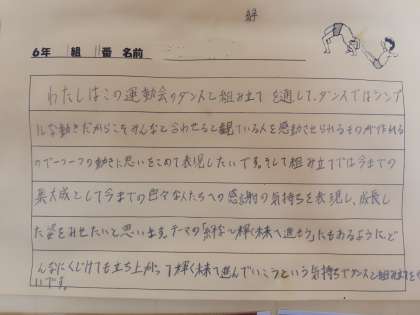 6年 1組 11番 名前
わたしはこの運動会のダンスと組み立てを通して、ダンスではシンプ
ルな動きだからこそみんなと合わせると観ている人を感動させられるものが作れる
ので一つ一つの動きに思いをこめて表現したいです。そして組み立てでは今までの
集大成として今までの色々な人たちへの感謝の気持ちを表現し、成長し
た姿をみせたいと思います。テーマの「絆で輝く未来へ進もう」にもあるように、ど
んなにくじけても立ち上がって輝く未来へ進んでいこうという気持ちでダンスと組み立てを
いです。